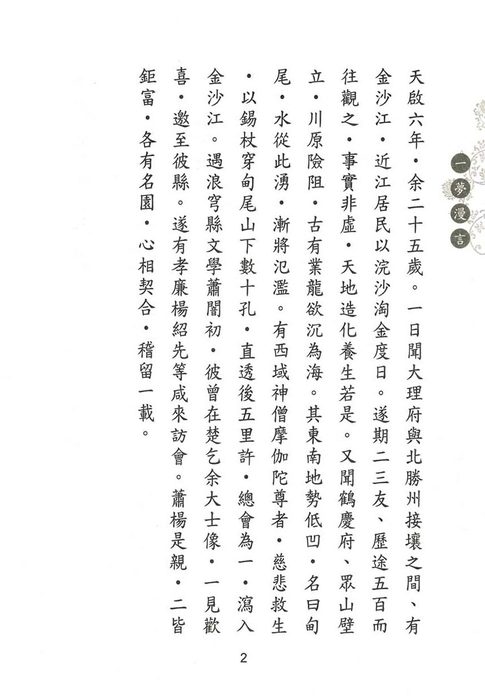 一夢漫言
天啟六年・余二十五歲。一日聞大理府與北勝州接壤之間、有
金沙江・近江居民以浣沙淘金度日。遂期二三友、歷途五百而
往觀之・事實非虛・天地造化養生若是。又聞鶴慶府、眾山壁
立・川原險阻・古有業龍欲沉為海。其東南地勢低凹・名曰甸
尾・水從此湧・漸將氾濫。有西域神僧摩伽陀尊者・慈悲救生
・以錫杖穿甸尾山下數十孔・直透後五里許・總會為一・瀉入
金沙江。遇浪穹縣文學蕭闇初・彼曾在楚乞余大士像・一見歡
喜・邀至彼縣。遂有孝廉楊紹先等咸來訪會。蕭楊是親・二皆
鉅富・各有名園・心相契合・稽留一載。
2